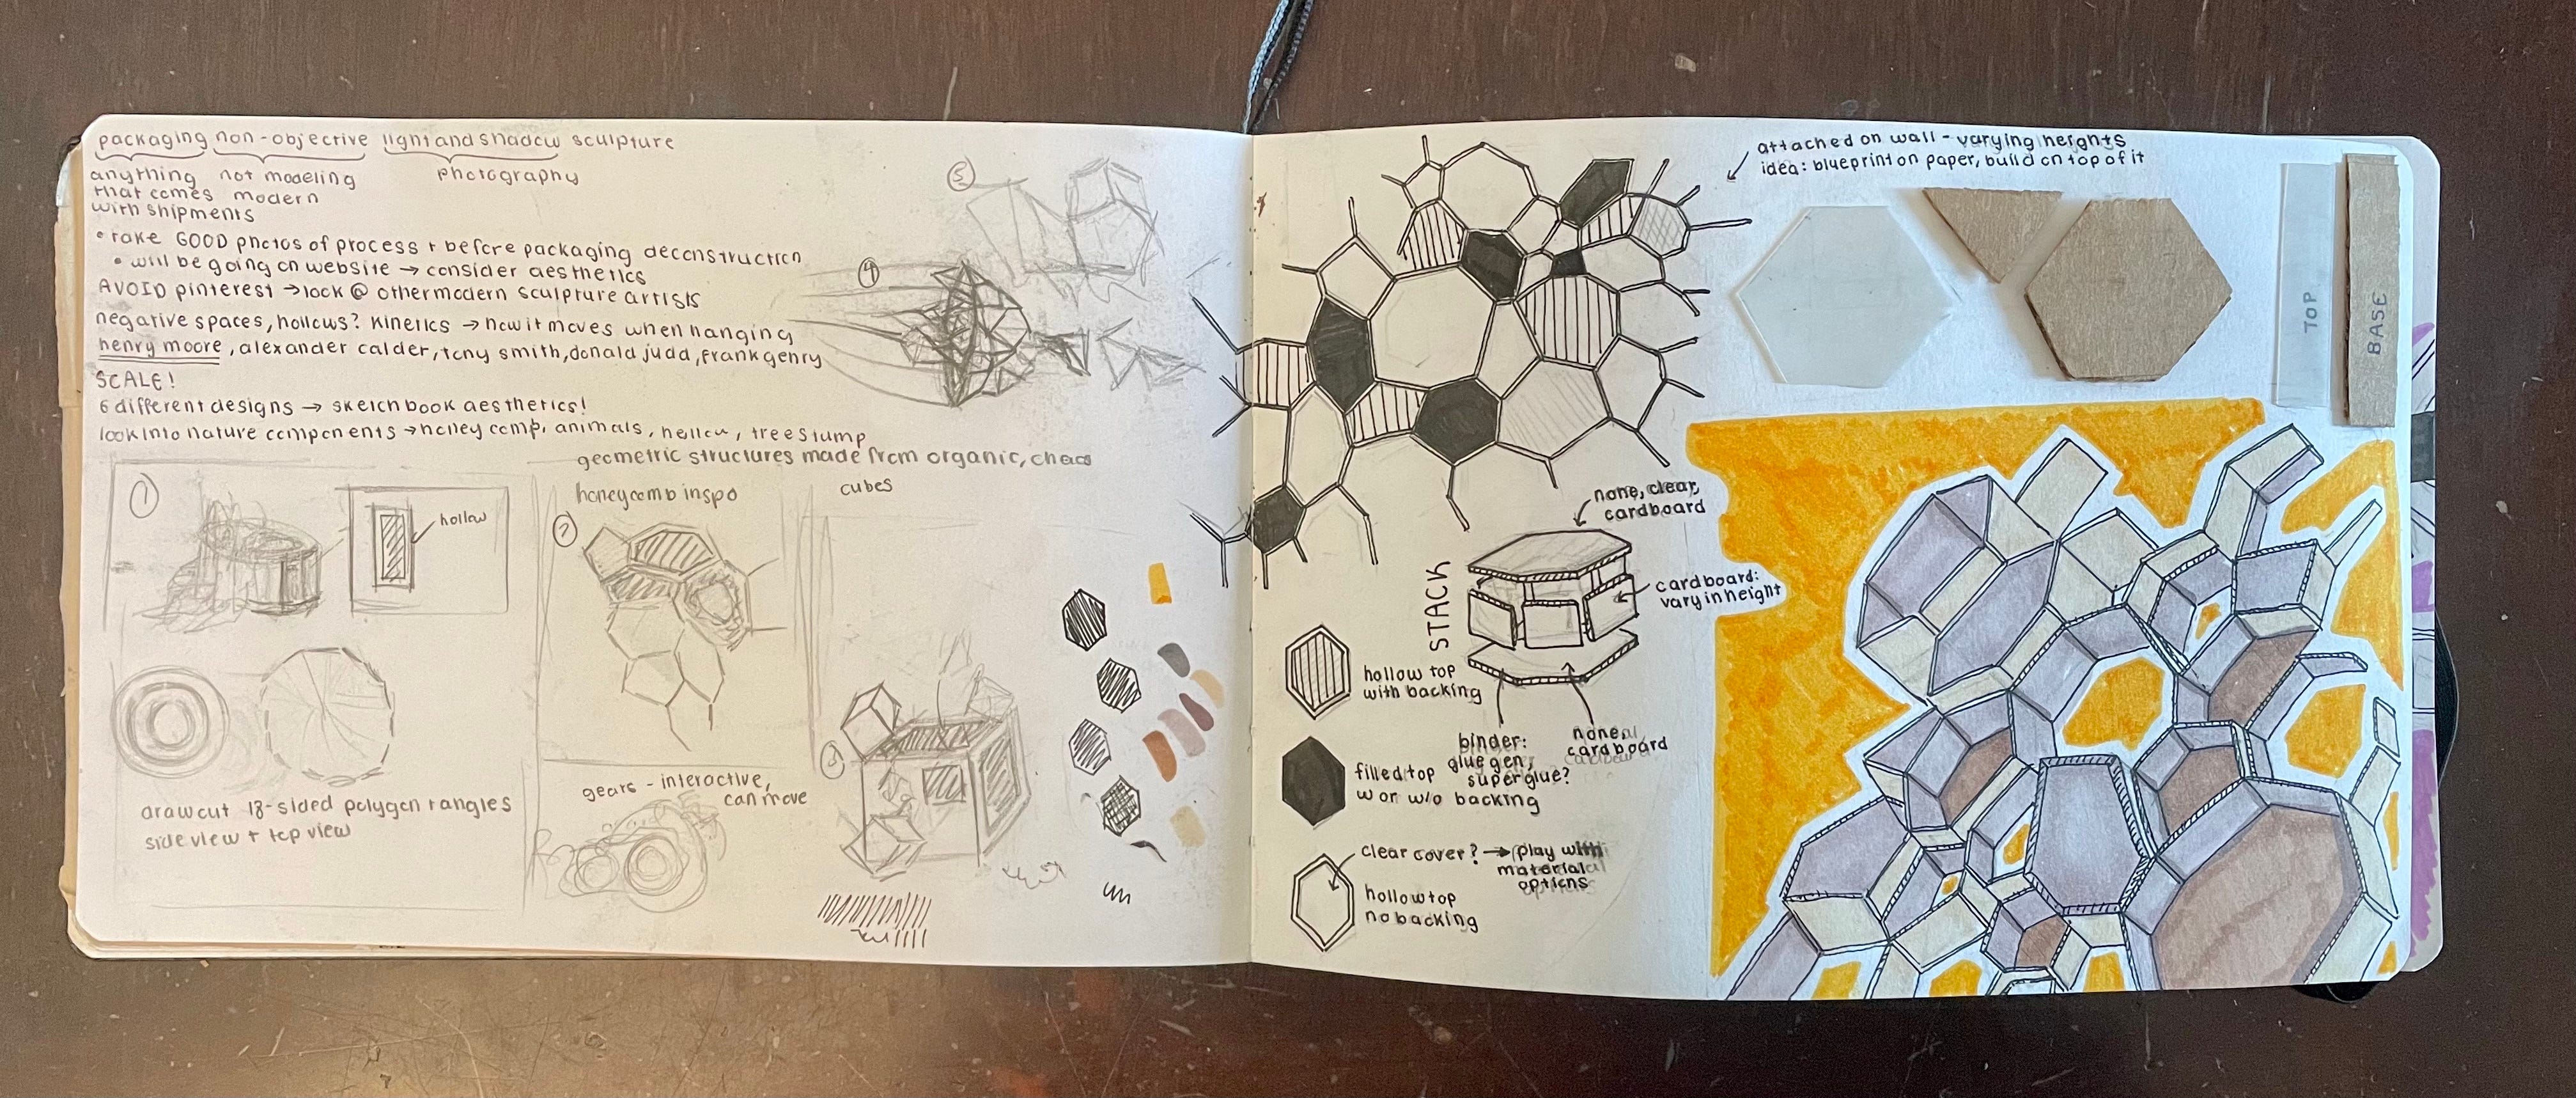 packaging non-objective light and shadow sculpture
anything not modeling photography
that comes modern
with shipments
• take GOOD photos of process + before packaging deconstruction
• will be going on website → consider aesthetics
AVOID pinterest → look @ other modern sculpture artists
negative spaces, hollows? kinetics → how it moves when hanging
henry moore, alexander calder, tony smith, donald judd, frank gehry
SCALE!
6 different designs → sketchbook aesthetics!
look into nature components → honey comp, animals, hollow, tree stump
geometric structures made from organic, chaos
1
hollow
draw out 18-sided polygon + angles
side view + top view
honeycomb inspo
2
gears - interactive,
can move
cubes
3
4
5
attached on wall - varying heights
idea: blueprint on paper, build on top of it
TOP
BASE
none, clear,
cardboard
STACK
cardboard:
vary in height
hollow top
with backing
binder:
glue gen,
superglue?
none,
cardboard
filled top
w or w/o backing
clear cover? → play with
material
options
hollow top
no backing